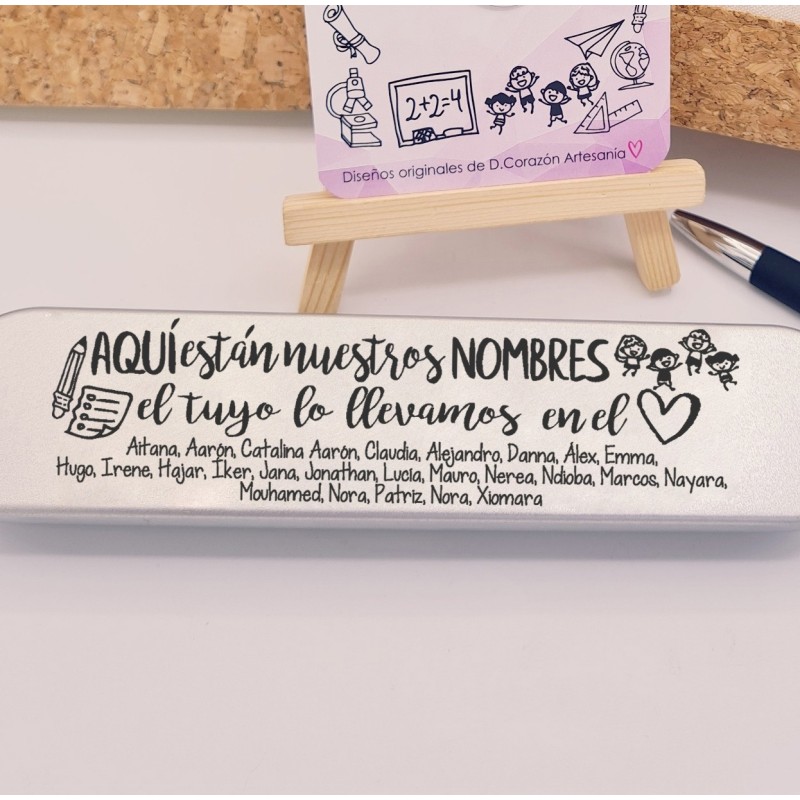 2+2=4
Diseños originales de D.Corazón Artesanía
AQUÍ están nuestros NOMBRES
el tuyo lo llevamos en el
Aitana, Aarón, Catalina Aarón, Claudia, Alejandro, Danna, Álex, Emma,
Hugo, Irene, Hajar, Íker, Jana, Jonathan, Lucía, Mauro, Nerea, Ndioba, Marcos, Nayara,
Mouhamed, Nora, Patriz, Nora, Xiomara